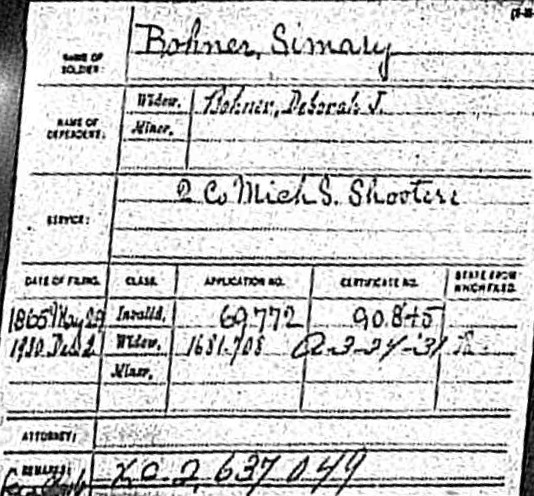 NAME OF SOLDIER: Bohner, Simary
NAME OF DEPENDENT: Widow, Bohner, Deborah J.
Minor,
SERVICE: 2 Co Mich S. Shooters
DATE OF FILING. CLASS. APPLICATION NO. CERTIFICATE NO. STATE FROM WHICH FILED.
1865 May 29 Invalid, 69.772 90.845
1930. Dec 2 Widow, 1681.708 A-3-24-31 Pa
Minor,
ATTORNEY:
REMARKS: XC 2,637,049